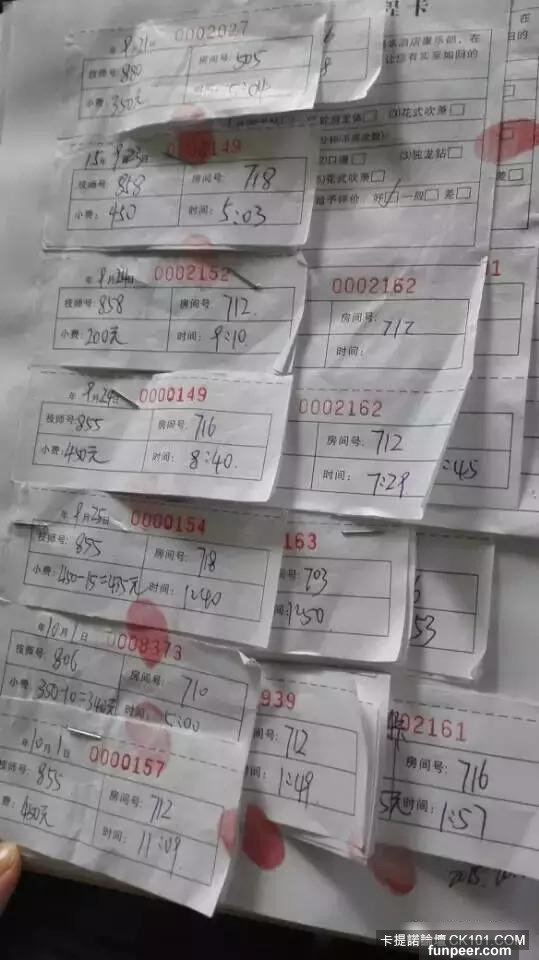 程卡
年 9月21日 0002027
技师号: 880 房间号: 505
小费: 350元 时间: 5:04
15年 9月23日 0002149
技师号: 858 房间号: 718
小费: 450 时间: 5:03
(3)花式吹箫□
(3)独龙钻□
(5)花式吹箫□
给予评价 好□ 一般□ 差□
差□
年 9月24日 0002152
技师号: 858 房间号: 712
小费: 200元 时间: 9:10
0002162
房间号: 712
时间:
年 9月24日 0000149
技师号: 855 房间号: 716
小费: 450元 时间: 8:40
0002162
房间号: 712
时间: 7:29
:45
年 9月25日 0000154
技师号: 855 房间号: 718
小费: 450-15=435元 时间: 1:40
163
房号: 703
时间: 1:50
53
年10月1日 0008373
技师号: 806 房间号: 710
小费: 350-10=340元 时间: 5:00
939
房间号: 712
时间: 1:49
02161
房间号: 716
5元 时间: 1:57
年10月1日 0000157
技师号: 855 房间号: 712
费: 450元 时间: 11:09
卡提諾論壇 CK101.COM
funpeer.com